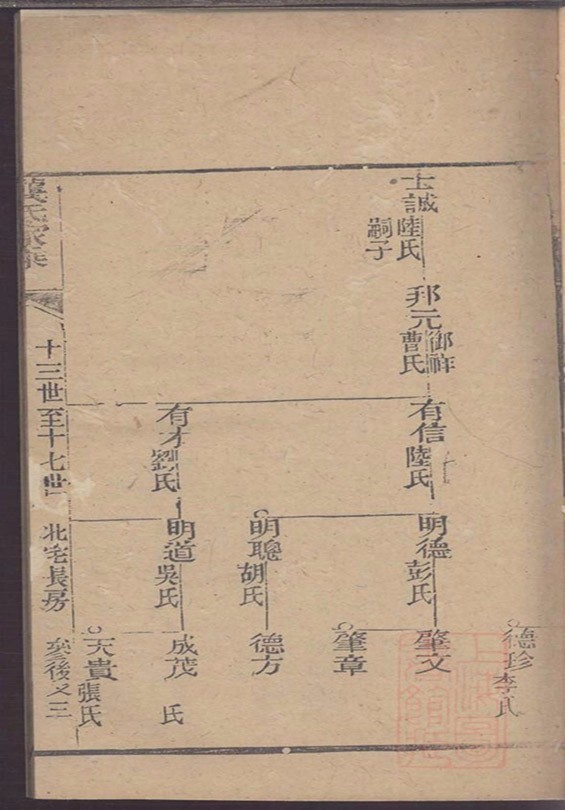 士誠陸氏
嗣子
邦元御祥
曹氏
有信陸氏
有才劉氏
明德彭氏
明聰胡氏
明道吳氏
德珍李氏
肇文
肇章
德方
成茂 氏
天貴張氏
氏家
十三世至十七世 北宅長房